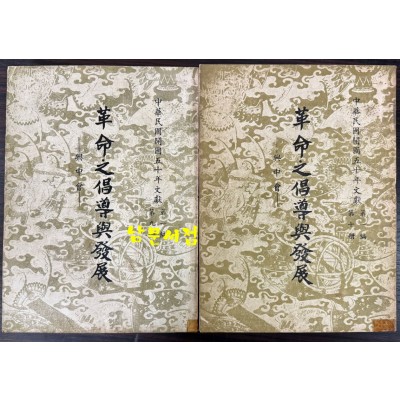 中華民國開國五十年文獻
革命之倡導與發展
興中會
남문서점
中華民國開國五十年文獻
第一編
革命之倡導與發展
興中會